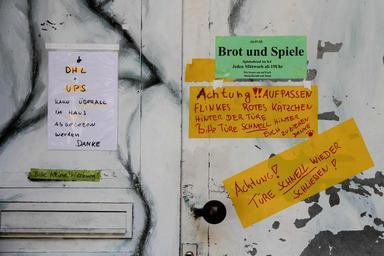 DHL
+
UPS
KANN ÜBERALL
IM HAUS
ABGEGEBEN
werden
DANKE
Bitte keine Werbung
Brot und Spiele
Jeden Mittwoch ab 19Uhr
Achtung!! AUFPASSEN
FLINKES ROTES KÄTZCHEN
HINTER DER TÜRE
Bitte TÜRE SCHNELL HINTER
EUCH ZUZIEHEN
DANKE
Achtung!
TÜRE SCHNELL WIEDER
SCHLIESSEN!